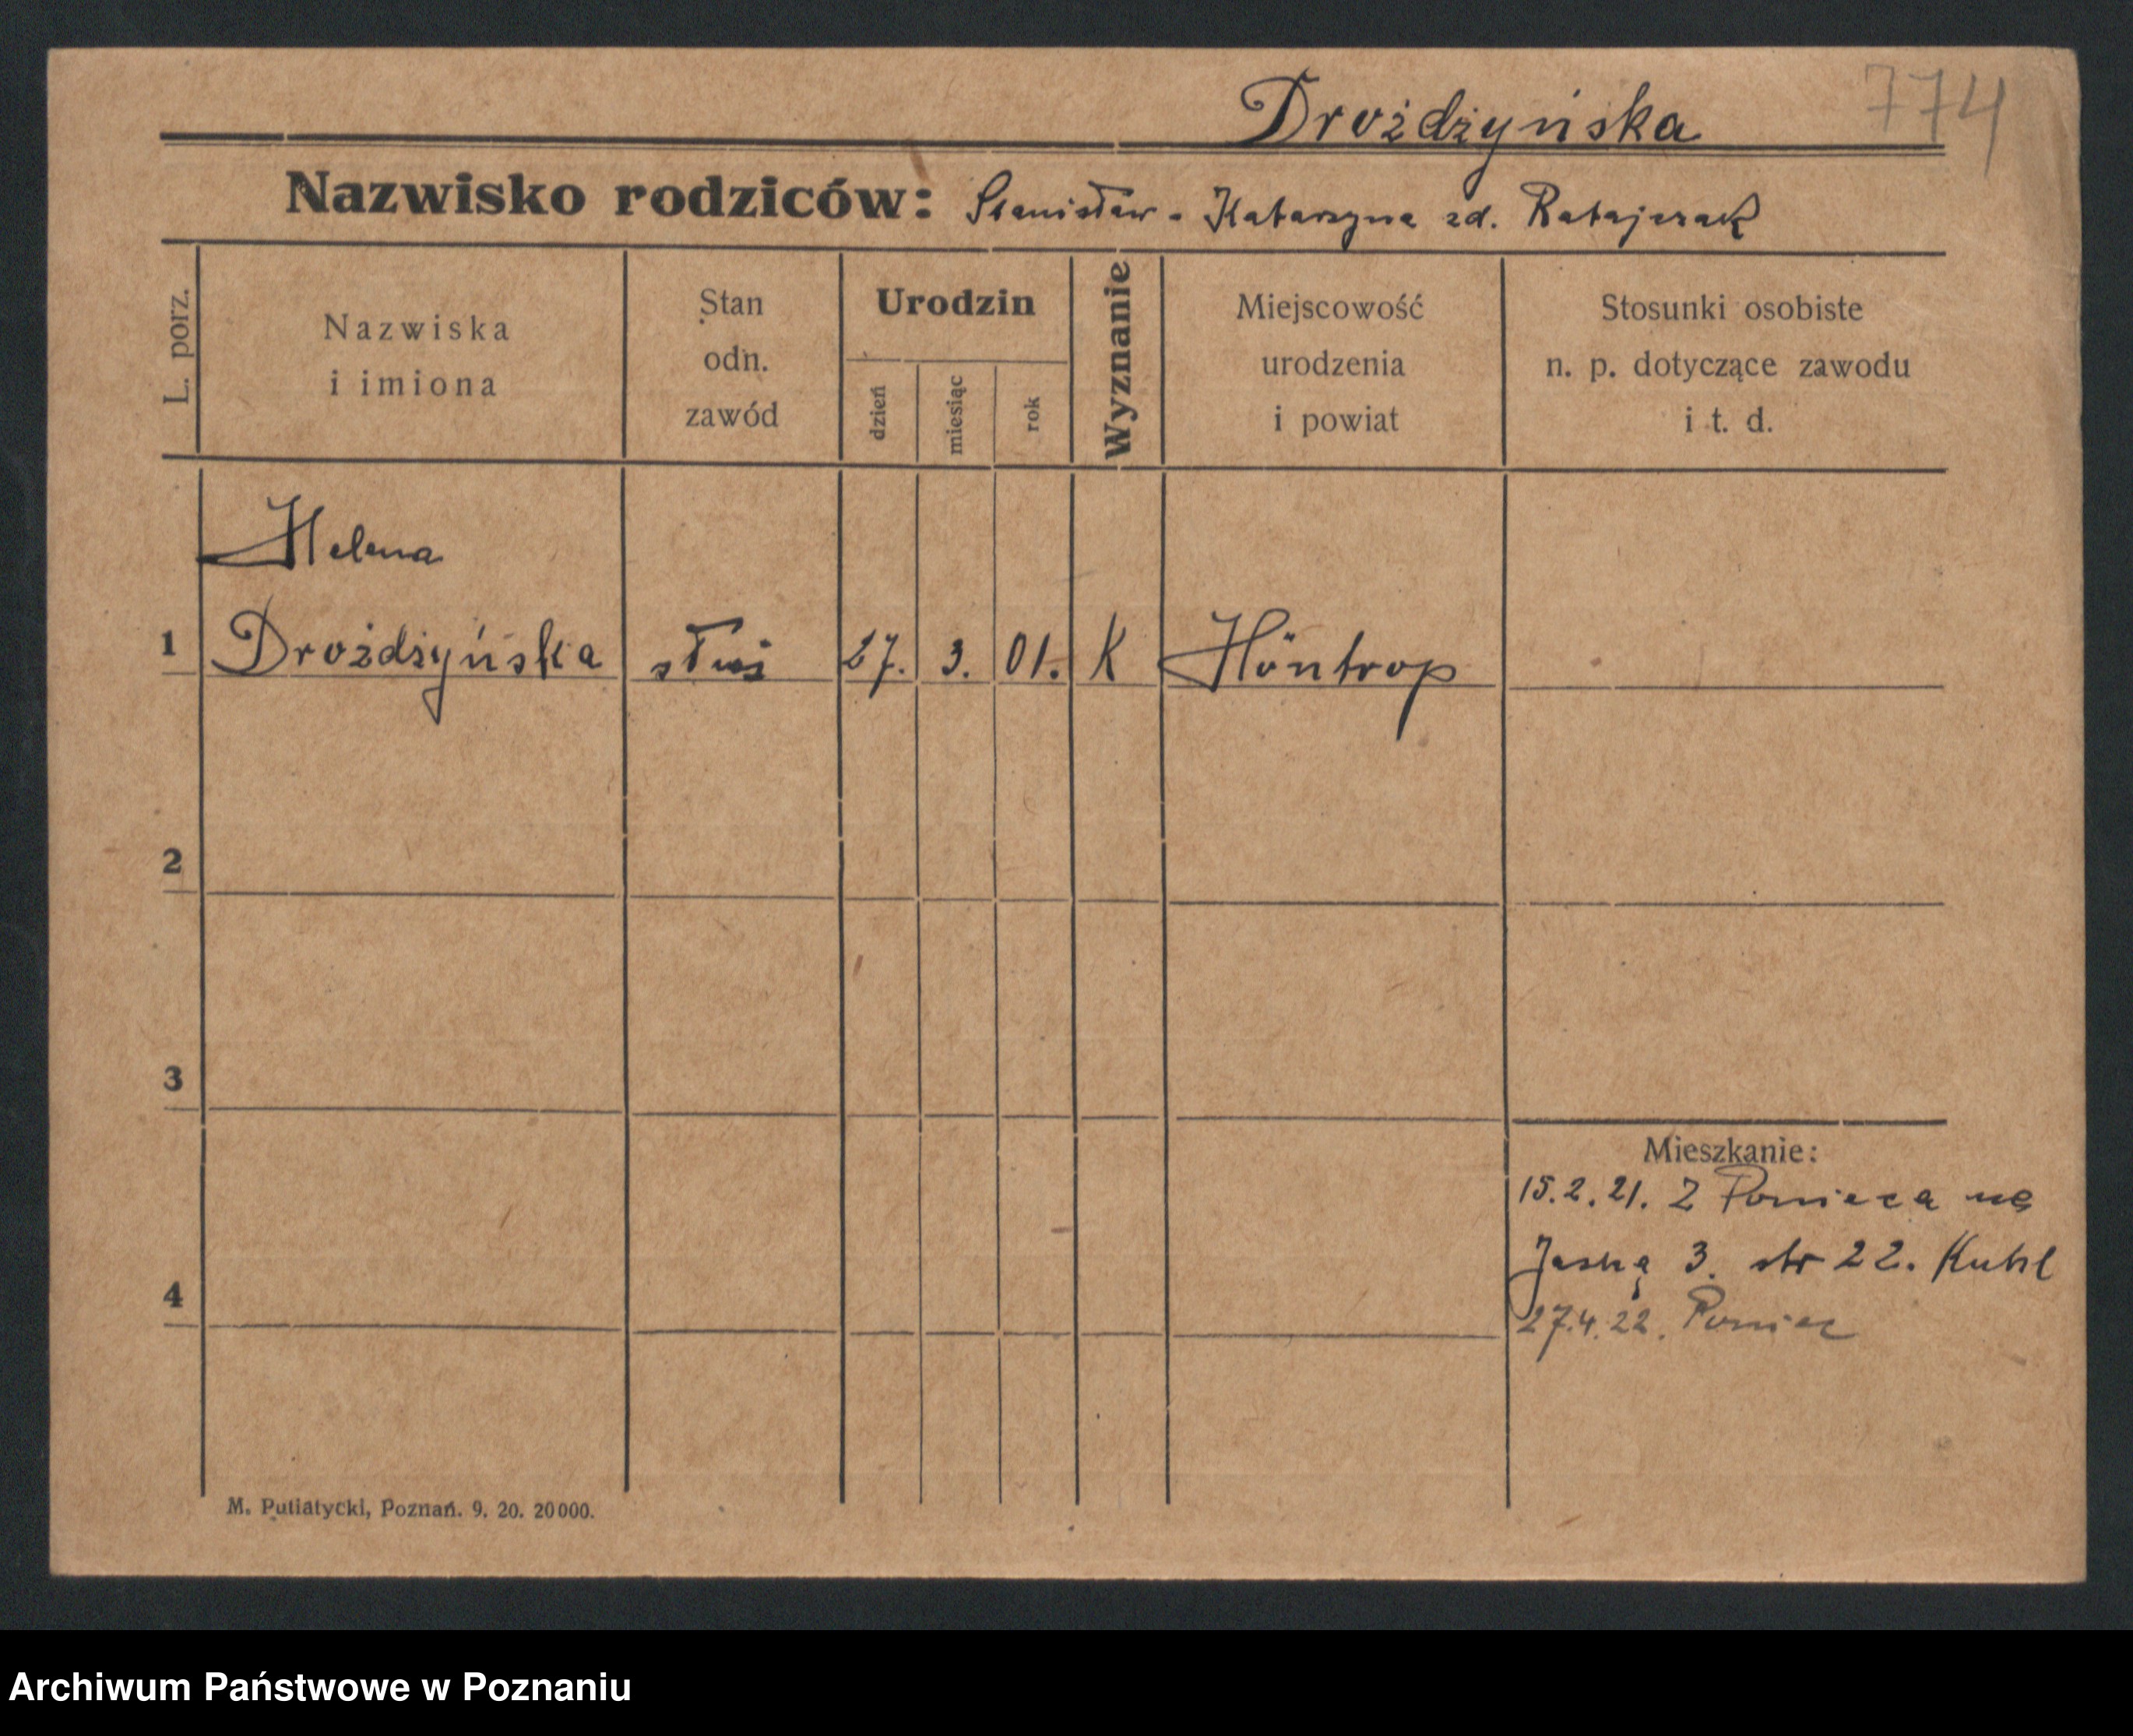 774
Drożdżyńska
Nazwisko rodziców: Stanisław - Katarzyna zd. Ratajczak
L. porz.
Nazwiska
i imiona
Stan
odn.
zawód
Urodzin
dzień
miesiąc
rok
Wyznanie
Miejscowość
urodzenia
i powiat
Stosunki osobiste
n. p. dotyczące zawodu
i t. d.
Helena
1 Drożdżyńska służ 27. 3. 01. K Höntrop
2
3
Mieszkanie:
15.2.21. Z Ponieca na
Jasną 3. str 22. Kuhl
4
27.4.22. Poniec
M. Putiatycki, Poznań. 9. 20. 20000.
Archiwum Państwowe w Poznaniu